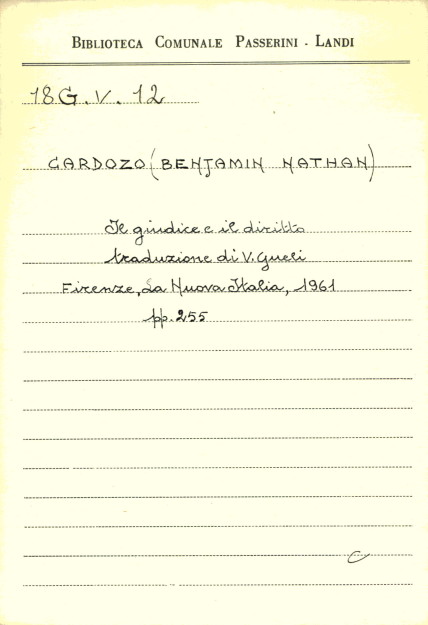 BIBLIOTECA COMUNALE PASSERINI - LANDI
18G.V.12
CARDOZO (BENJAMIN NATHAN)
Il giudice e il diritto
traduzione di V. Gueli
Firenze, La Nuova Italia, 1961
pp. 255
C